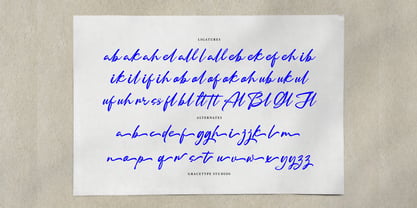 LIGATURES
ab ak ah el all l all eb ek ef ch ib
ik il if ih ob ol of ok oh ub uk ul
uf uh rr ss fl bl tt Tt Al Bl Ol Jl
ALTERNATES
a b c d e f g g h i j j k l m
n o p q r s t u v w x y y z z
GRACETYPE STUDIOS